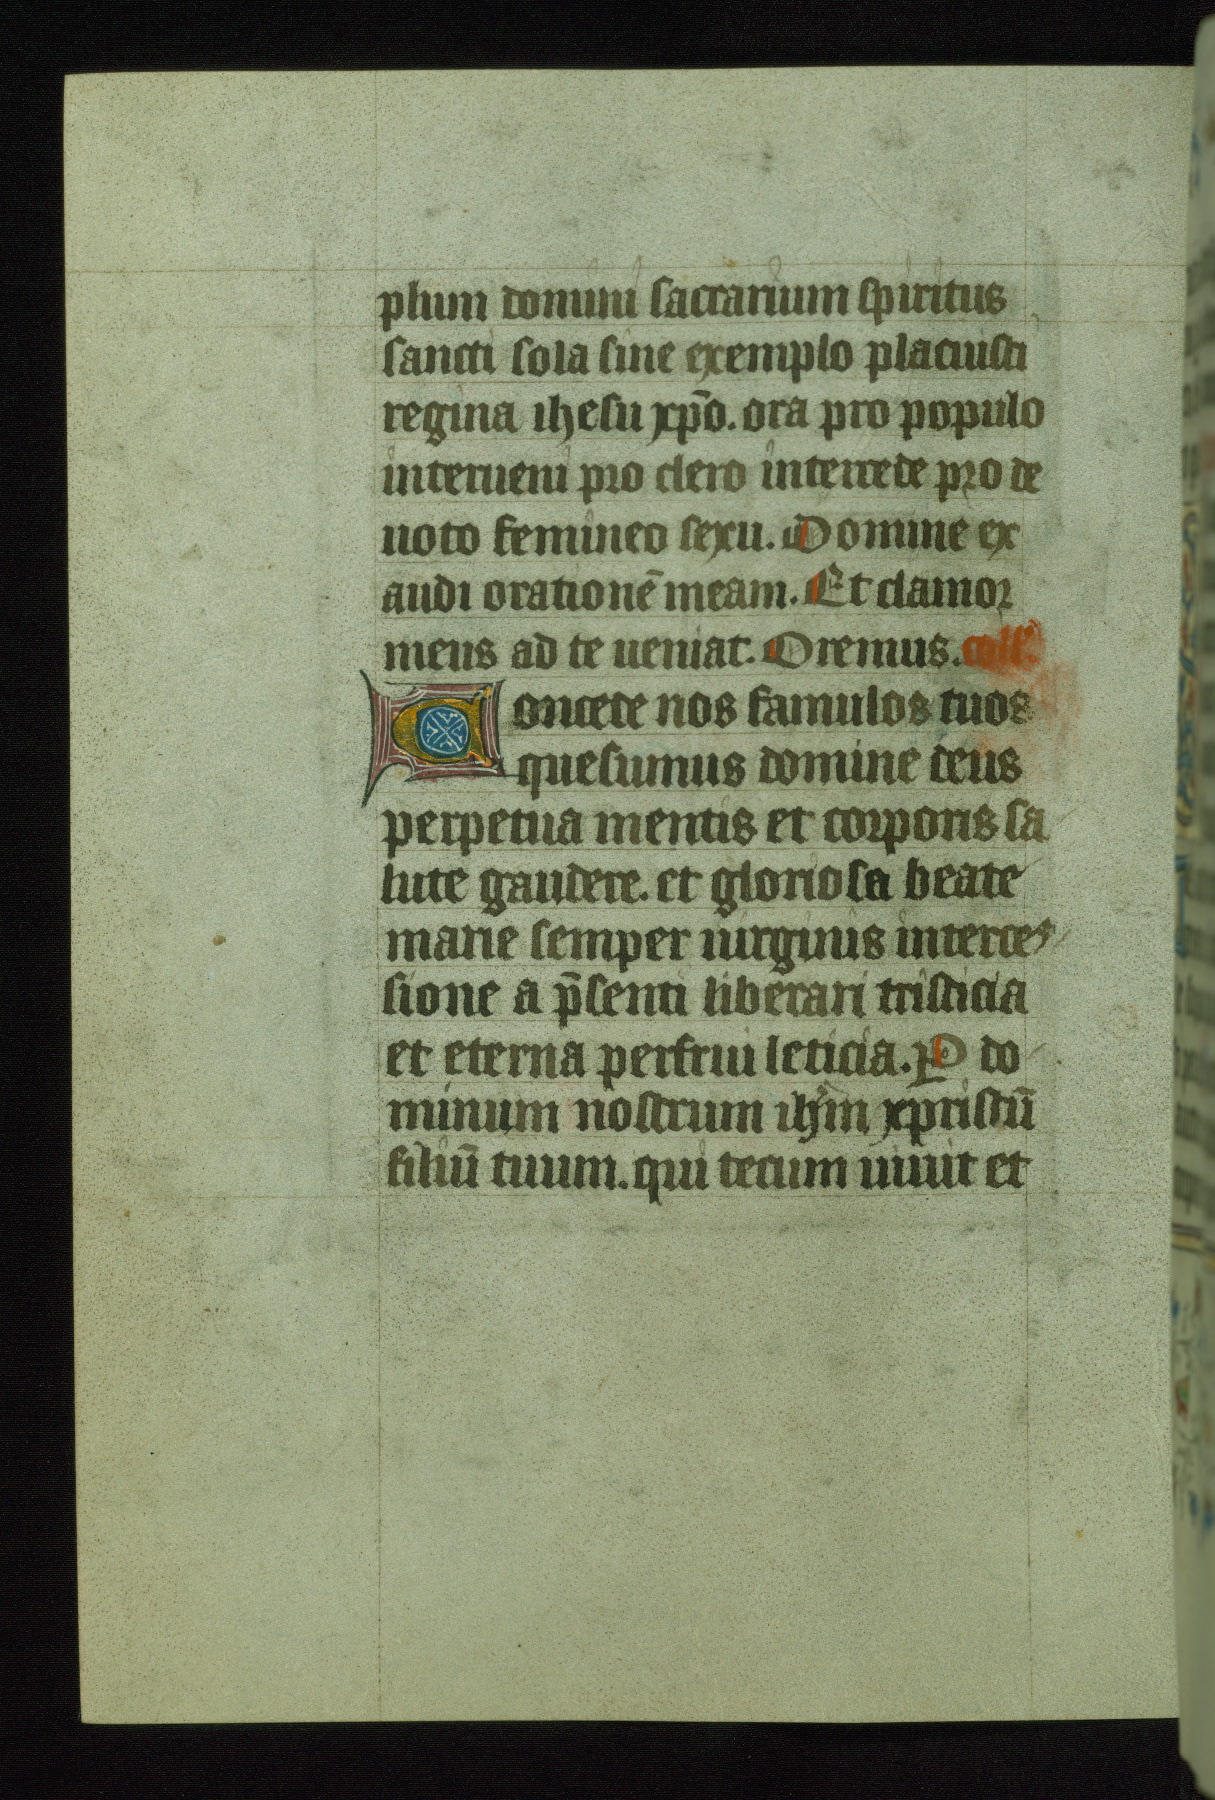 plum domini sacrarium spiritus
sancti sola sine exemplo placuisti
regina ihesu xp̄o. ora pro populo
interueni pro clero intercede pro de
uoto femineo sexu. Domine ex
audi orationē meam. Et clamor
meus ad te ueniat. Oremus. coll̄.
Concede nos famulos tuos
quesumus domine deus
perpetua mentis et corporis sa
lute gaudere. et gloriosa beate
marie semper uirginis interces
sione a p̄senti liberari tristicia
et eterna perfrui leticia. P do
minum nostrum ihm̄ xpristū
filiū tuum. qui tecum uiuit et